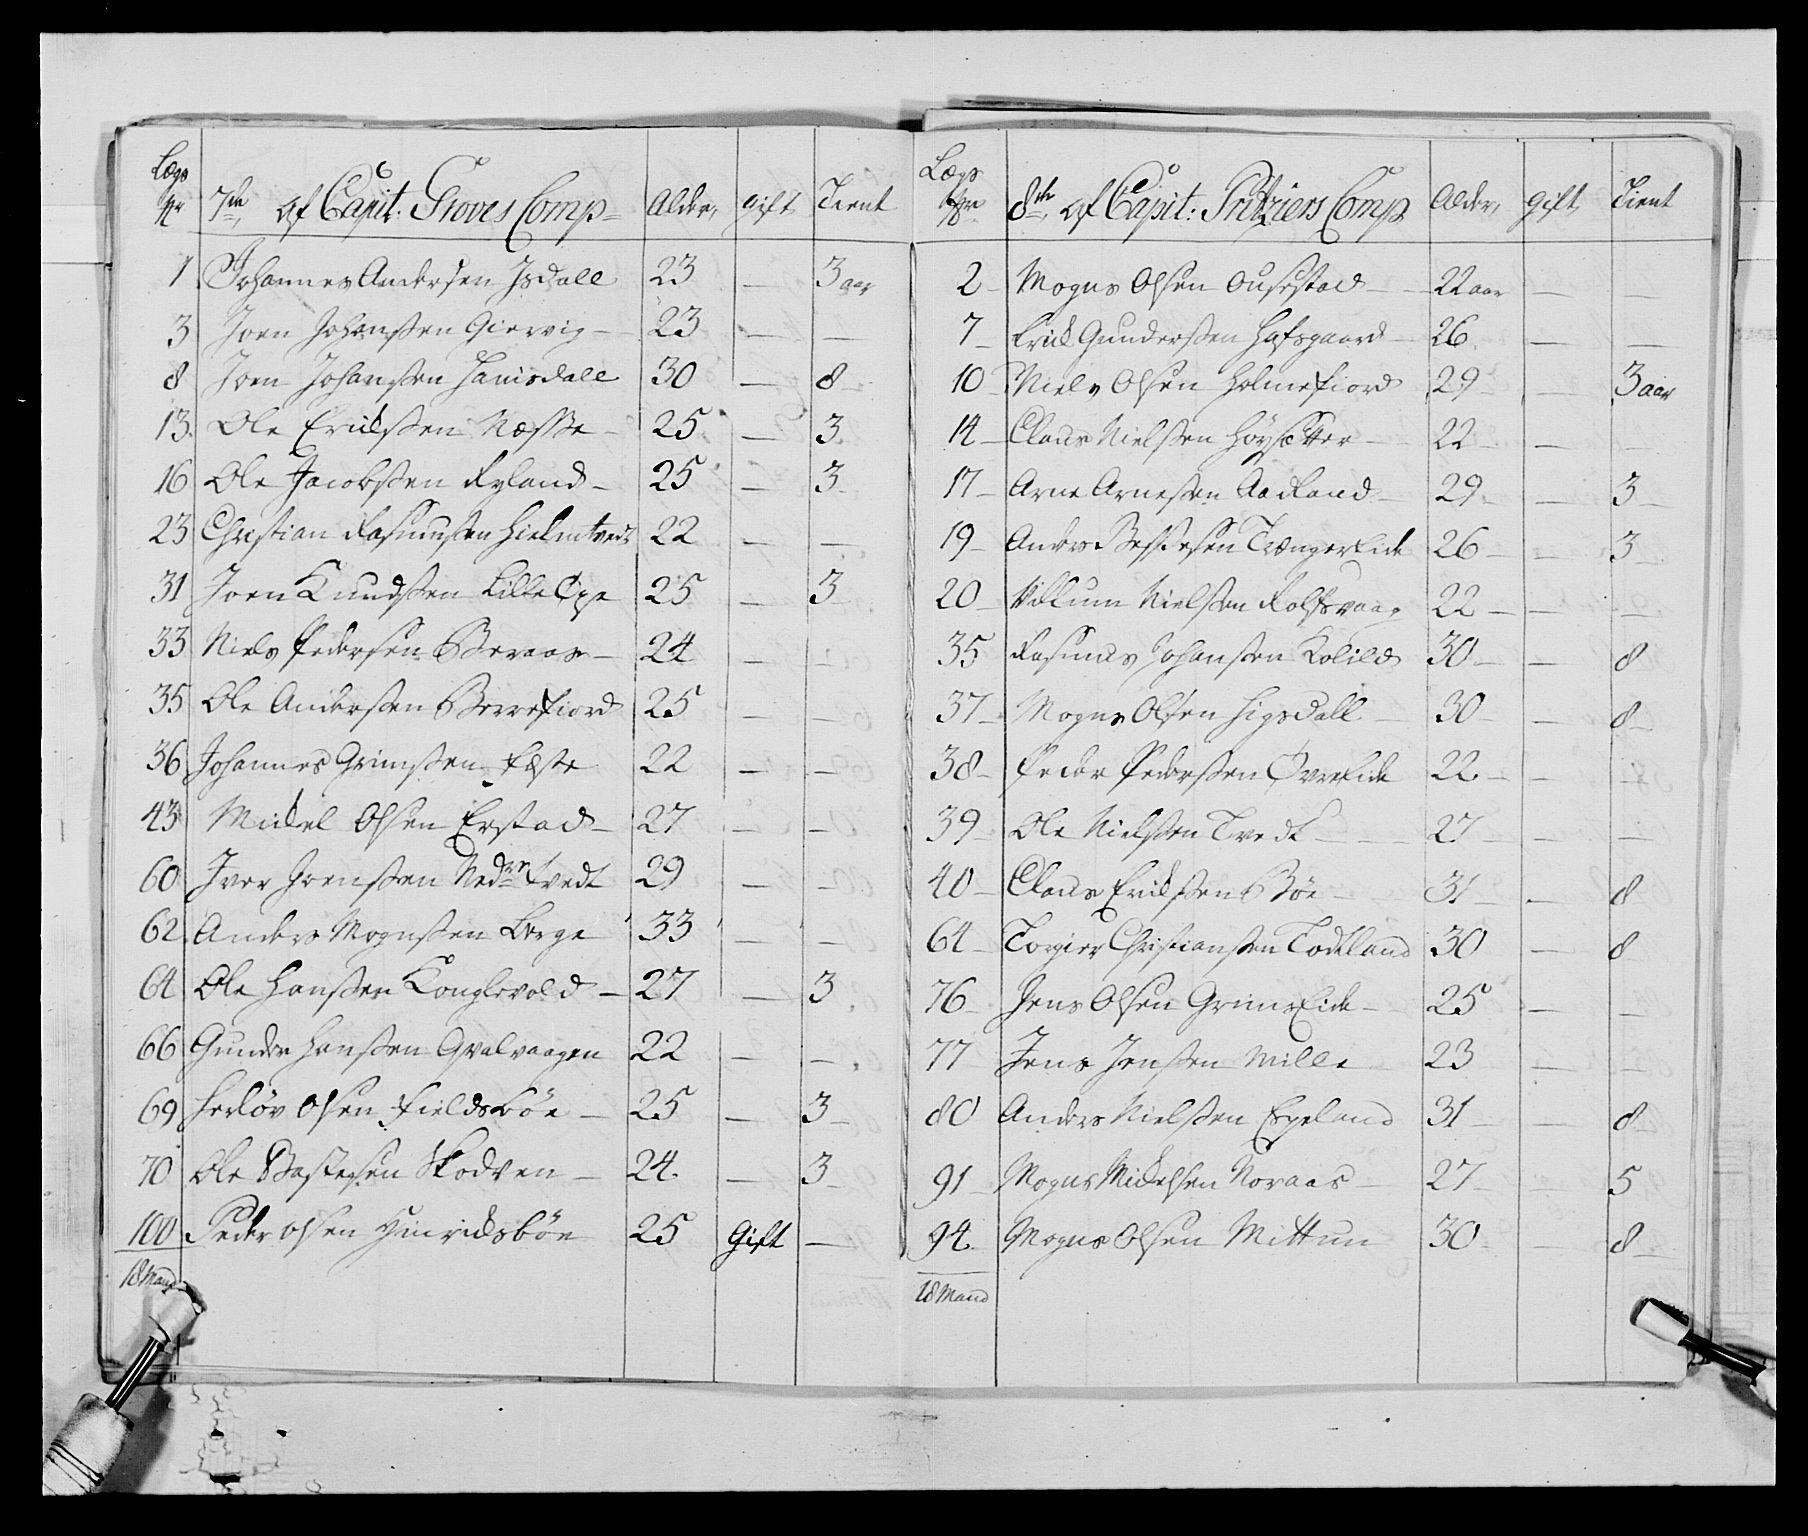 Lægs
Nr 7de af Capit: Groves Comp= Alder, gift Tient
1 Johannes Andersen Isdall 23 — 3 aar
3 Joen Johansen Giervig — 23 — —
8 Joen Johanssen Hanisdall 30 — 8
13 Ole Erichssen Næsse — 25 — 3
16 Ole Jacobssen Ryland — 25 — 3
23 Christian Rasmussen Hielmtvedt 22 — —
31 Joen Knudssen Lille 25 — 3
33 Niels Pedersen Beraas — 24 — —
35 Ole Anderssen Berrefiord 25 — —
36 Johannes Grimssen Fæste 22 — —
43 Mickel Olsen Erstad — 27 — —
60 Iver Joenssen Nedre Tvedt 29 — —
62 Anders Mognssen Berge 33 — —
64 Ole Hanssen Konglevold — 27 — 3
66 Gunder Hanssen Qvalvaagen 22 — —
69 Herlöv Olsen Fieldsböe — 25 — 3
70 Ole Bastesen Skodven — 24 — 3
100 Peder Olsen Hinrichsböe 25 Gift —
18 Mand
Lægs
Nr 8de af Capit: Fritziers Comp Alder, gift, Tient
2 Mogns Olsen Ousestad 22 aar — —
7 Erich Gunderssen Hafsgaard 26 — —
10 Niels Olsen Holmefiord 29 — 3 aar
14 Claus Nielssen Höysetter 22 — —
17 Arne Arnessen Aadland 29 — 3
19 Anders Tængereide 26 — 3
20 Villum Nielssen Rolfsvaag 22 — —
35 Rasmus Johanssen Kolild 30 — 8
37 Mogns Olsen Higsdall 30 — 8
38 Peder Pederssen Øvreeide 22 — —
39 Ole Nielssen Tvedt 27 — —
40 Claus Erichssen Böe 31 — 8
64 Torgier Christianssen Todtland 30 — 8
76 Jens Olsen Grimseide 25 — —
77 Jens Jenssen Mille 23 — —
80 Anders Nielssen Espeland 31 — 8
91 Mogns Mickelsen Noraas 27 — 5
94 Mogns Olsen Mittun 30 — 8
18 Mand